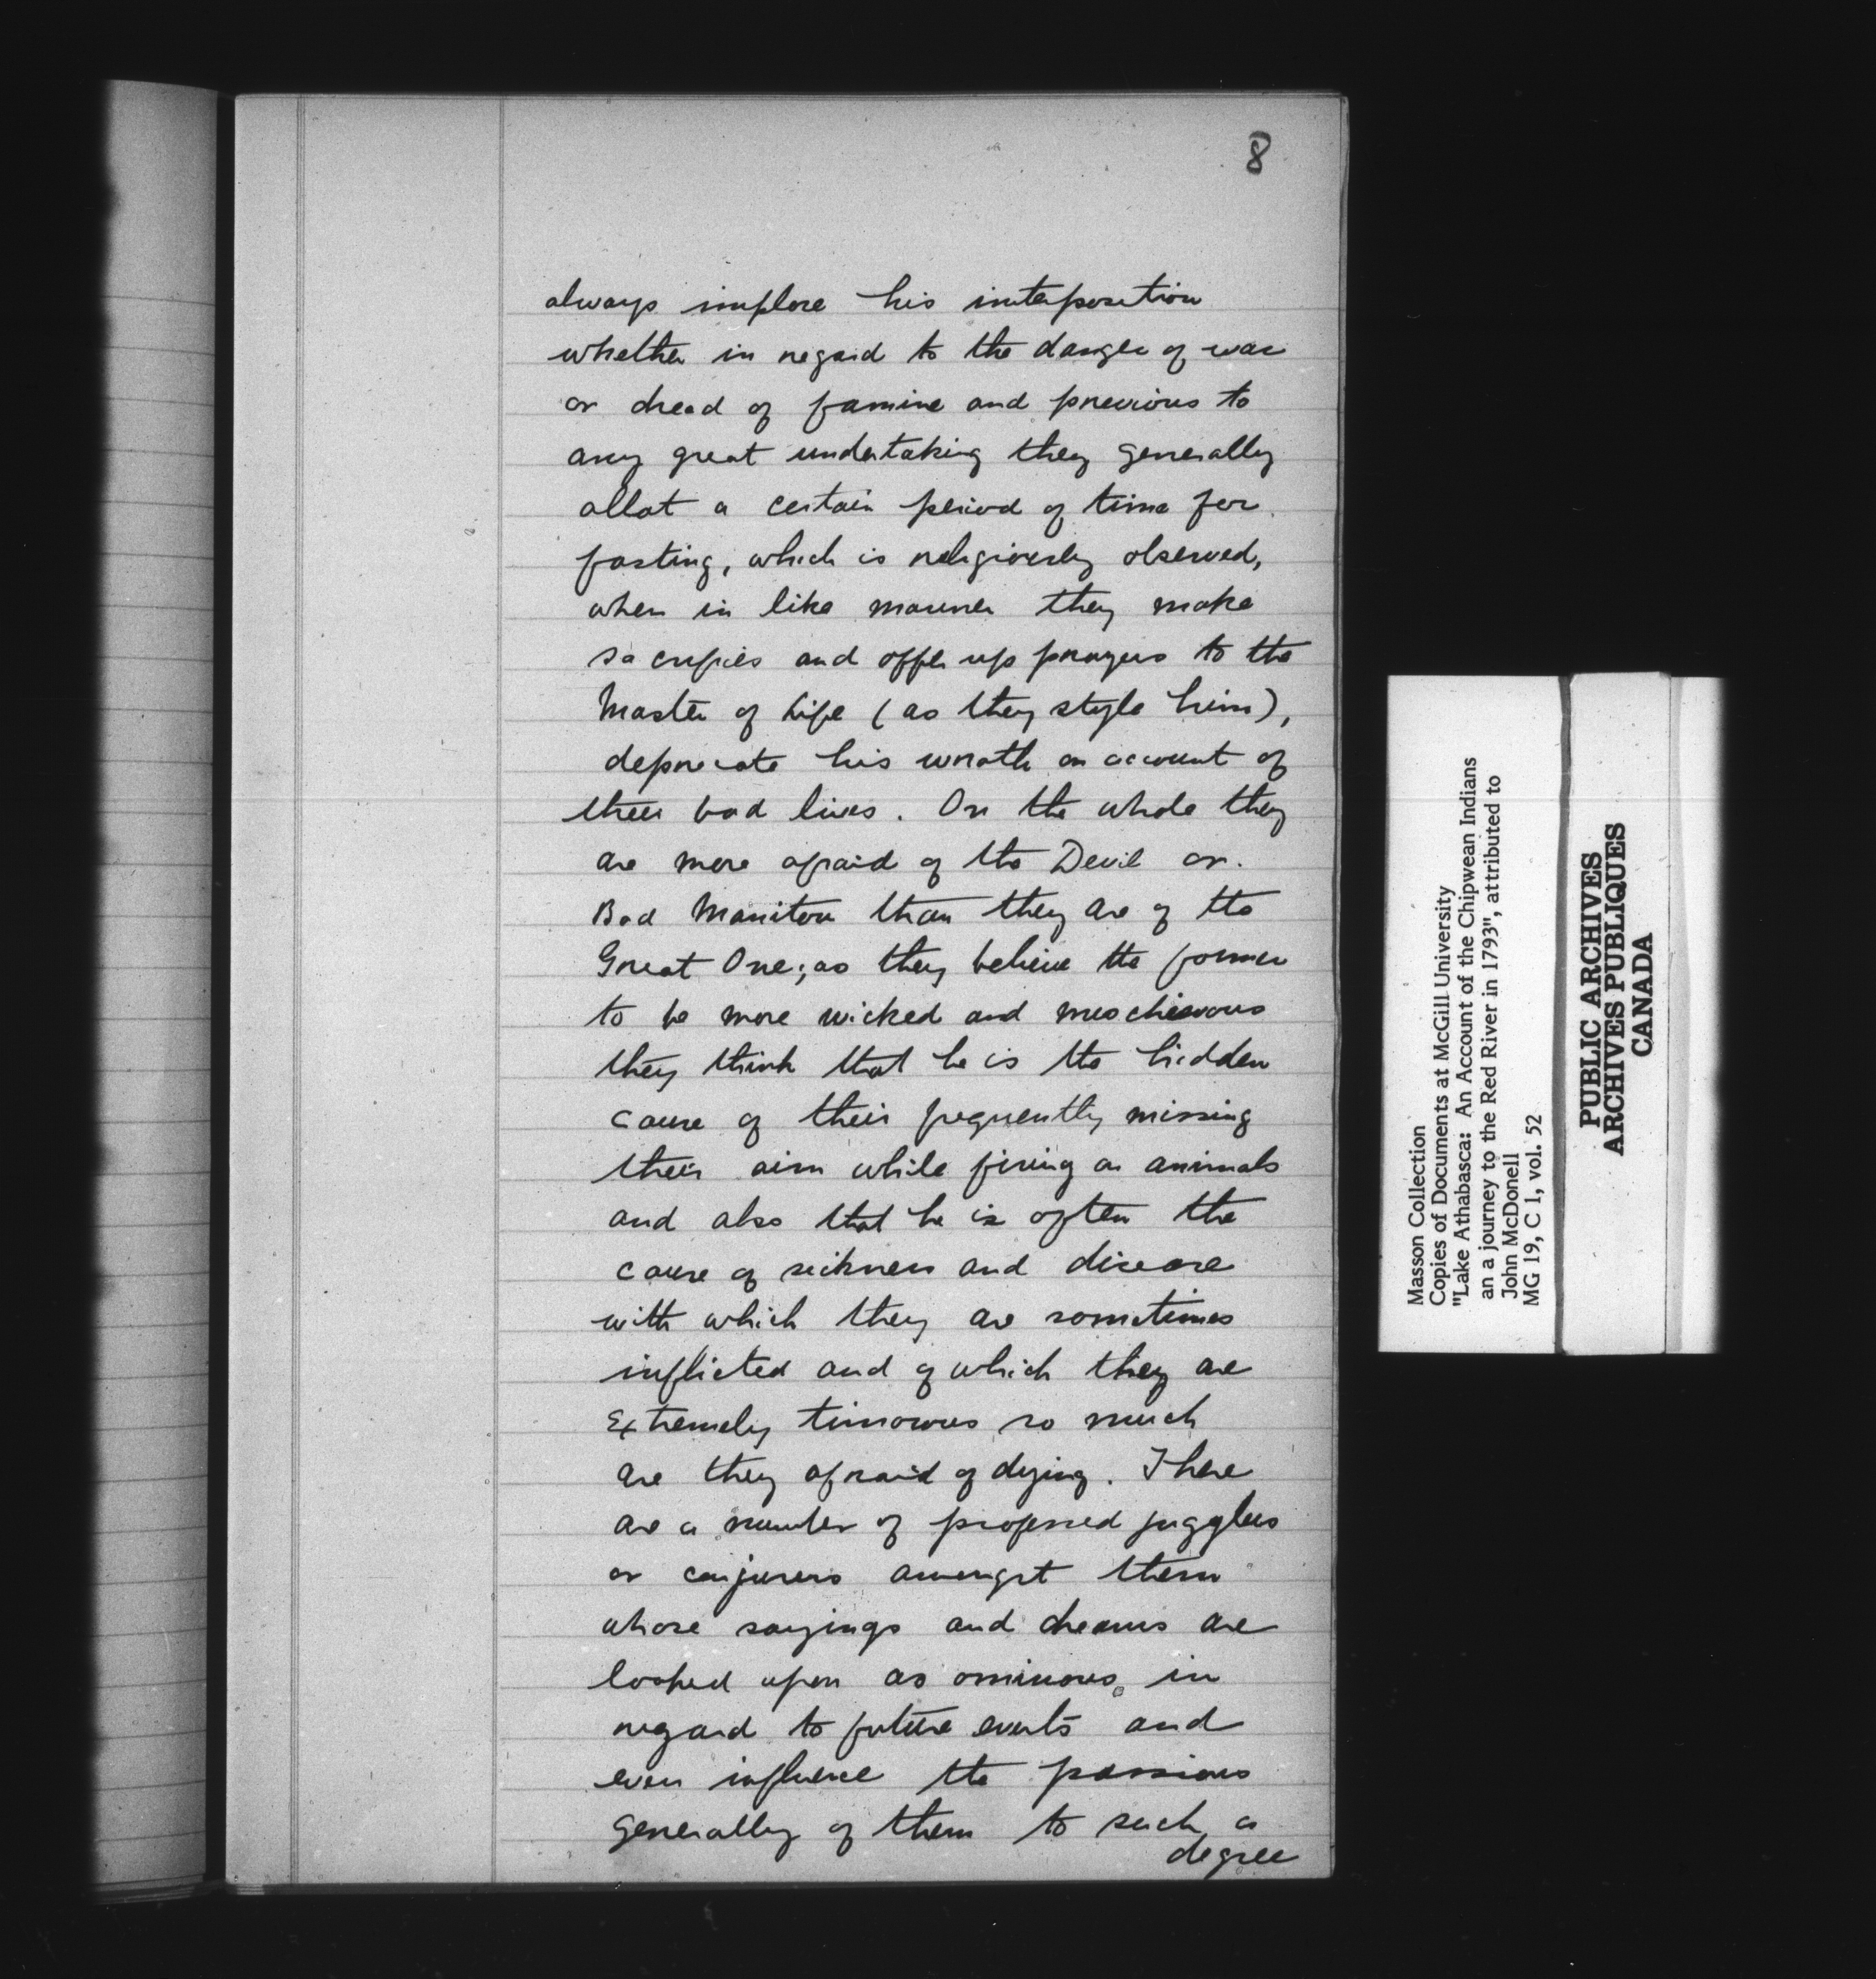 8
always implore his interposition
whether in regard to the danger of war
or dread of famine and previous to
any great undertaking they generally
allot a certain period of time for
fasting, which is religiously observed,
when in like manner they make
sacrifies and offer up prayers to the
Master of Life (as they style him),
deprecate his wrath on account of
their bad lives. On the whole they
are more afraid of the Devil or
Bad Manitou than they are of the
Great One; as they believe the former
to be more wicked and mischievous
they think that he is the hidden
cause of their frequently missing
their aim while firing on animals
and also that he is often the
cause of sickness and disease
with which they are sometimes
inflicted and of which they are
Extremely timorous so much
are they afraid of dying. There
are a number of professed jugglers
or conjurers amongst them
whose sayings and dreams are
looked upon as ominous in
regard to future events and
even influence the passions
generally of them to such a
degree
Masson Collection
Copies of Documents at McGill University
"Lake Athabasca: An Account of the Chipwean Indians
an a journey to the Red River in 1793", attributed to
John McDonell
MG 19, C 1, vol. 52
PUBLIC ARCHIVES
ARCHIVES PUBLIQUES
CANADA